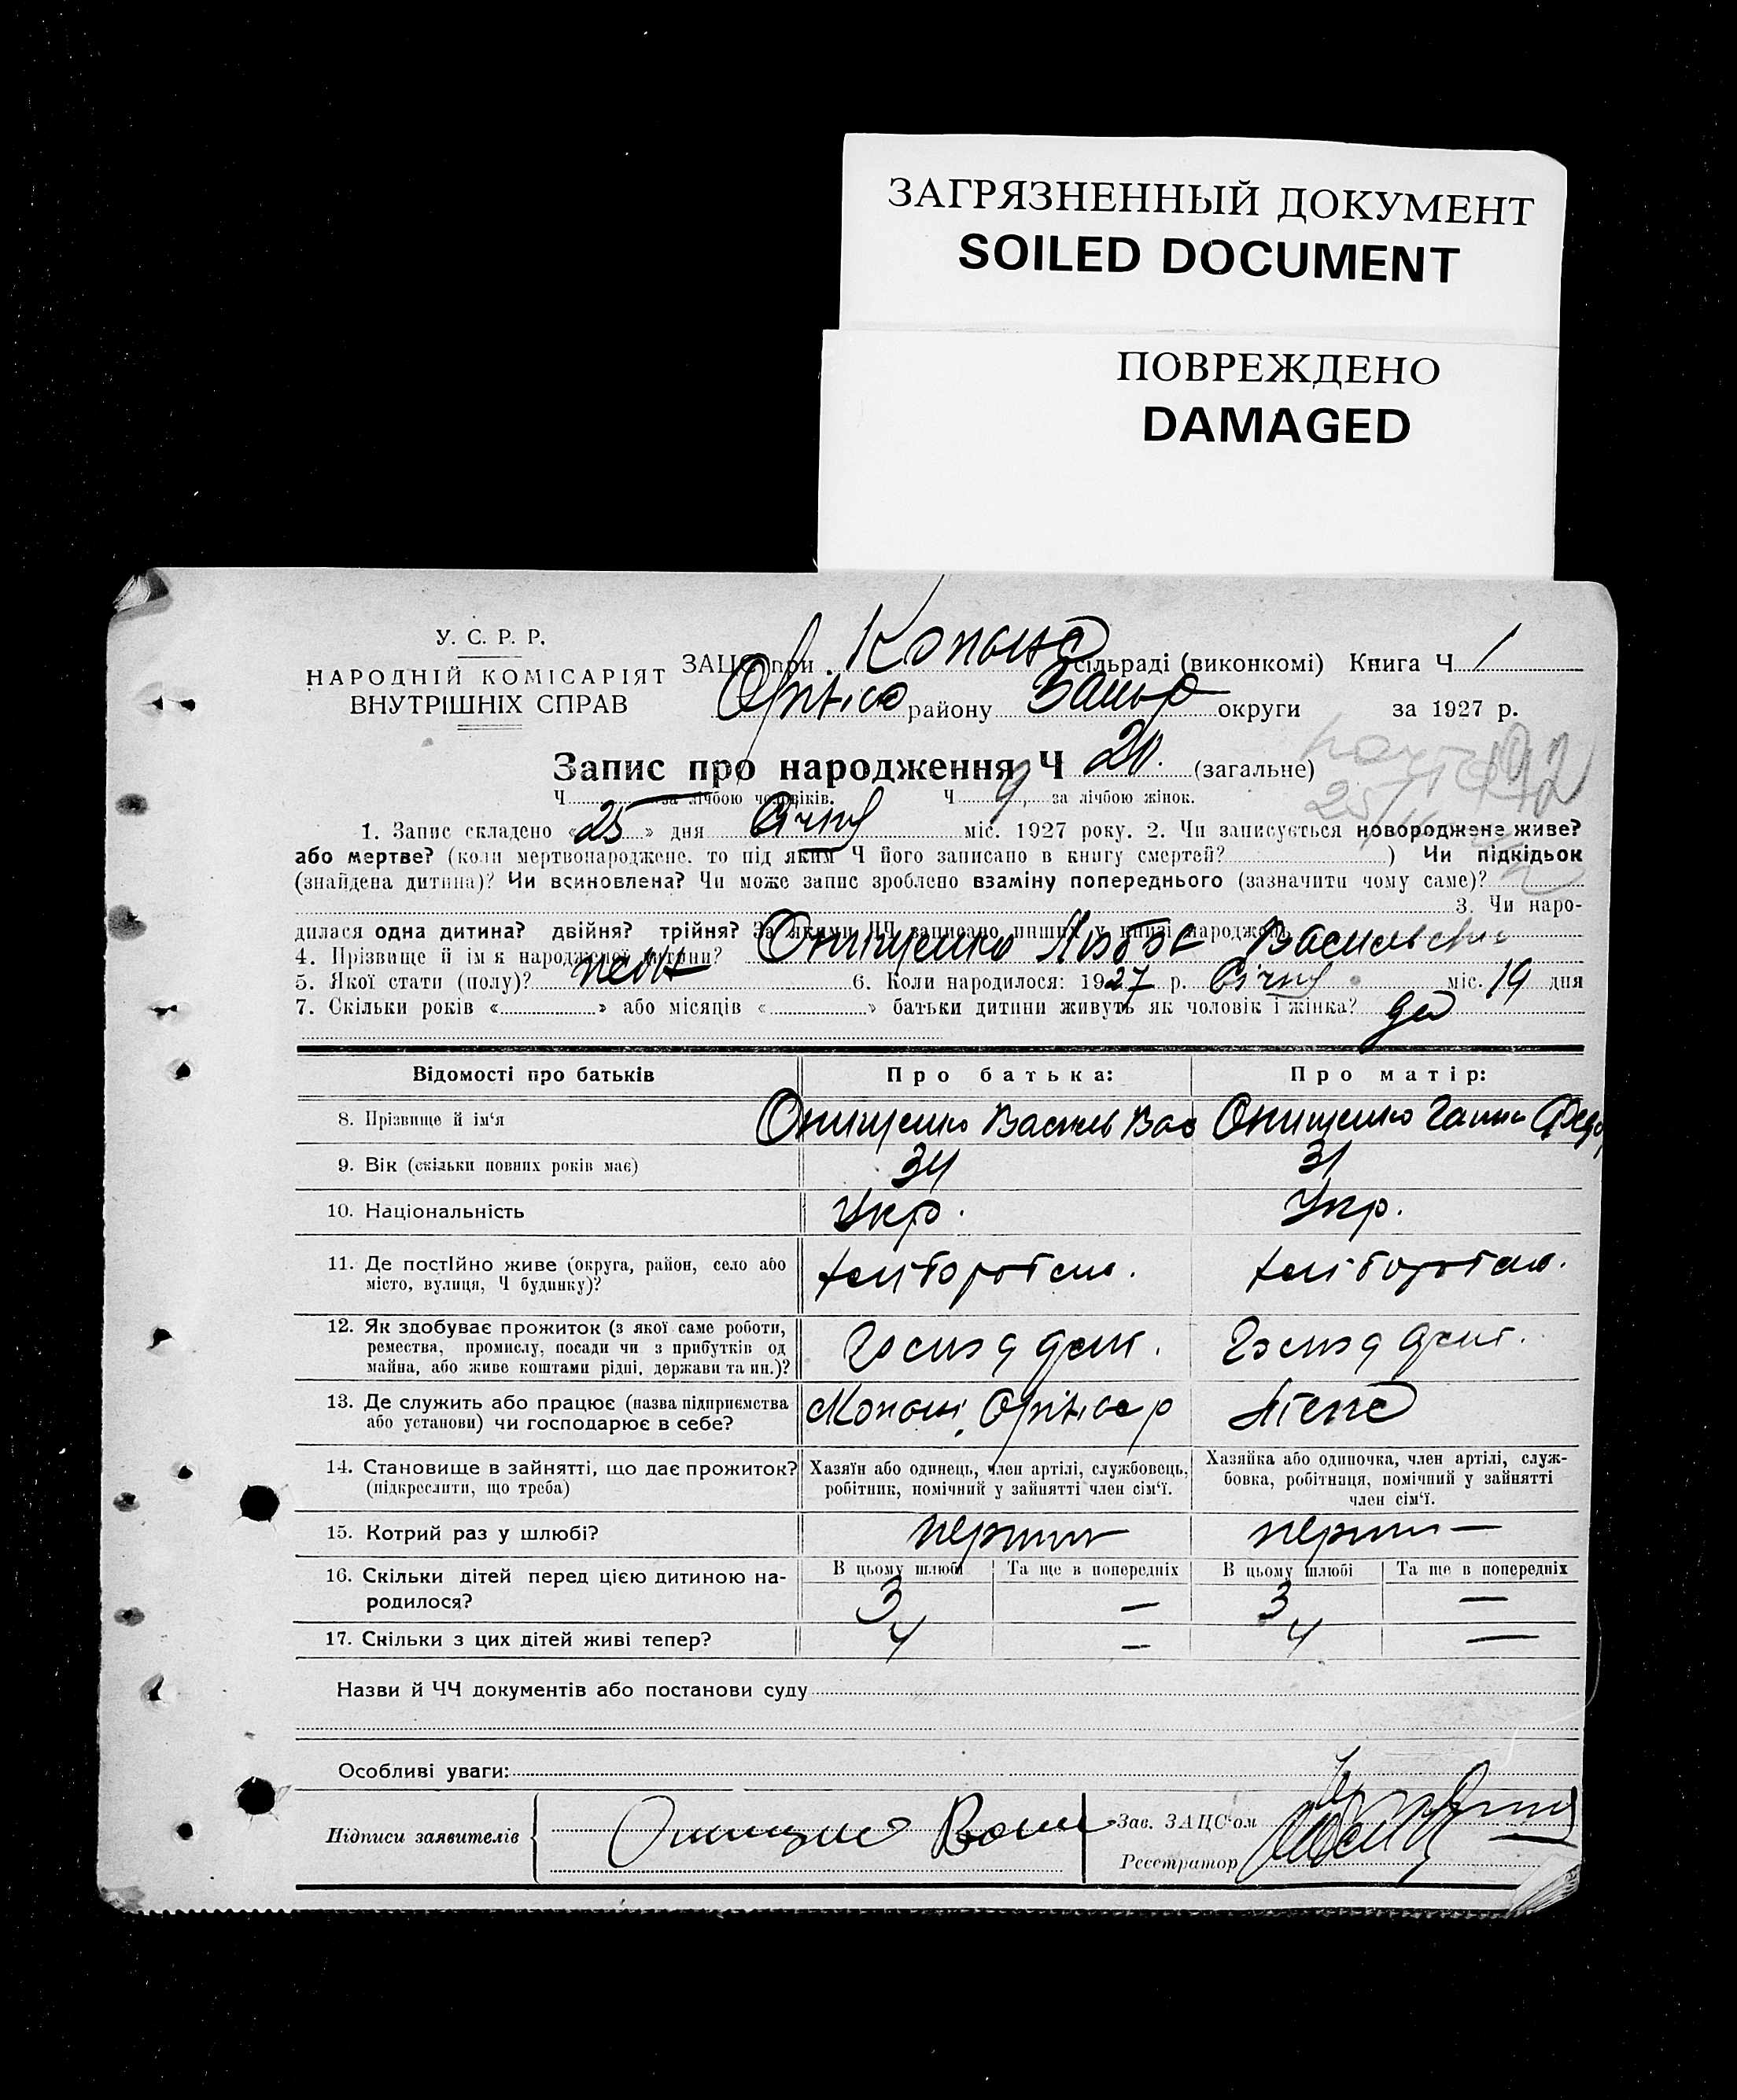 ЗАГРЯЗНЕННЫЙ ДОКУМЕНТ
SOILED DOCUMENT
ПОВРЕЖДЕНО
DAMAGED
У. С. Р. Р.
НАРОДНІЙ КОМІСАРІЯТ
ВНУТРІШНІХ СПРАВ
ЗАЦС при сільраді (виконкомі) Книга Ч 1
району округи за 1927 р.
Запис про народження Ч 20. (загальне)
Ч за лічбою чоловіків. Ч 9 за лічбою жінок.
1. Запис складено «25» дня Січня міс. 1927 року. 2. Чи записується новороджене живе?
або мертве? (коли мертвонароджене, то під яким Ч його записано в книгу смертей? ) Чи підкідьок
(знайдена дитина)? Чи всиновлена? Чи може запис зроблено взаміну попереднього (зазначити чому саме)?
3. Чи наро-
дилася одна дитина? двійня? трійня? За якими ЧЧ записано инших у книзі народжень
4. Прізвище й ім'я народженої дитини? Онищенко Любов Васильевна
5. Якої стати (полу)? жен 6. Коли народилося: 1927 р. Січня міс. 19 дня
7. Скільки років « » або місяців « » батьки дитини живуть як чоловік і жінка?
Відомості про батьків Про батька: Про матір:
8. Прізвище й ім'я Онищенко Василь Вас Онищенко Ганна Федор
9. Вік (скільки повних років має) 34 31
10. Національність Укр. Укр.
11. Де постійно живе (округа, район, село або
місто, вулиця, Ч будинку)?
12. Як здобуває прожиток (з якої саме роботи,
ремества, промислу, посади чи з прибутків од
майна, або живе коштами рідні, держави та ин.)?
13. Де служить або працює (назва підприємства
або установи) чи господарює в себе?
14. Становище в зайнятті, що дає прожиток?
(підкреслити, що треба)
Хазяїн або одинець, член артілі, службовець,
робітник, помічний у зайнятті член сім'ї.
Хазяйка або одиночка, член артілі, служ-
бовка, робітниця, помічний у зайнятті
член сім'ї.
15. Котрий раз у шлюбі?
16. Скільки дітей перед цією дитиною на-
родилося?
В цьому шлюбі Та ще в попередніх В цьому шлюбі Та ще в попередніх
3 — 3 —
17. Скільки з цих дітей живі тепер? 4 — 4 —
Назви й ЧЧ документів або постанови суду
Особливі уваги:
Підписи заявителів
Зав. ЗАЦС'ом
Реєстратор